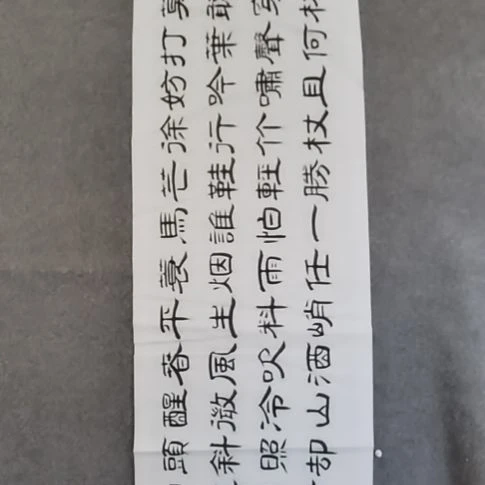 莫聽穿林
打葉聲何
妨吟嘯且
徐行竹杖
芒鞋輕勝
馬誰怕一
蓑烟雨任
平生料峭
春風吹酒
醒微冷山
頭斜照却